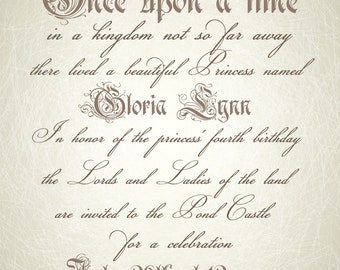 Once upon a time
in a kingdom not so far away
there lived a beautiful Princess named
Gloria Lynn
In honor of the princess' fourth birthday
the Lords and Ladies of the land
are invited to the Pond Castle
for a celebration